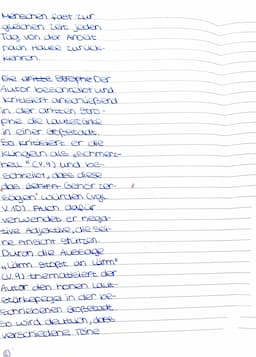 Menschen fast zur
gleichen Zeit jeden
Tag von der Arbeit
nach Hause zurück-
kehren.
Die dritte Strophe Der
Autor beschreibt und
kritisiert anschließend
in der dritten Stro-
phe die Lautstärke
in einer Großstadt.
So kritisiert er die
Klingeln als „schmerz-
hell" (V.9) und be-
schreibt, dass diese
das Gehör zer-
sägen" würden (vgl.
V.10). Auch dafür
verwendet er nega-
tive Adjektive, die sei-
ne Ansicht stützen.
Durch die Aussage
„Lärm stößt an Lärm"
(V.9) thematisiert der
Autor den hohen Laut-
stärkepegel in der be-
schriebenen Großstadt.
So wird deutlich, dass
verschiedene Töne